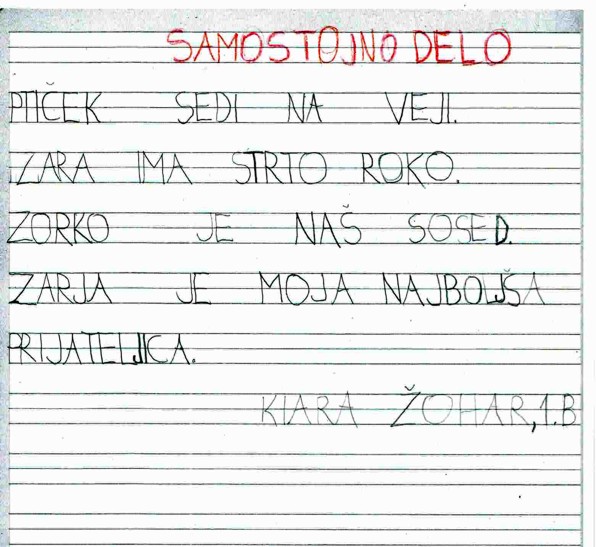 SAMOSTOJNO DELO
PTIČEK SEDI NA VEJI.
ZARA IMA STRTO ROKO.
ZORKO JE NAŠ SOSED.
ZARJA JE MOJA NAJBOLJŠA
PRIJATELJICA.
KIARA ŽOHAR, 1.B